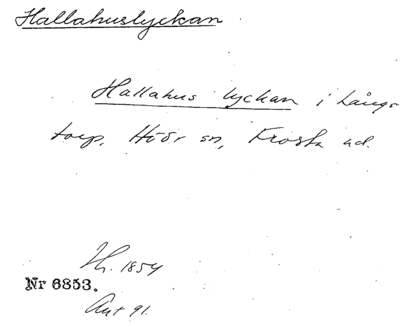 Hallahuslyckan
Hallahus lyckan i Långs
torp, Höör sn, Frosta hd.
Th. 1854
Nr 6853.
Ant 91.